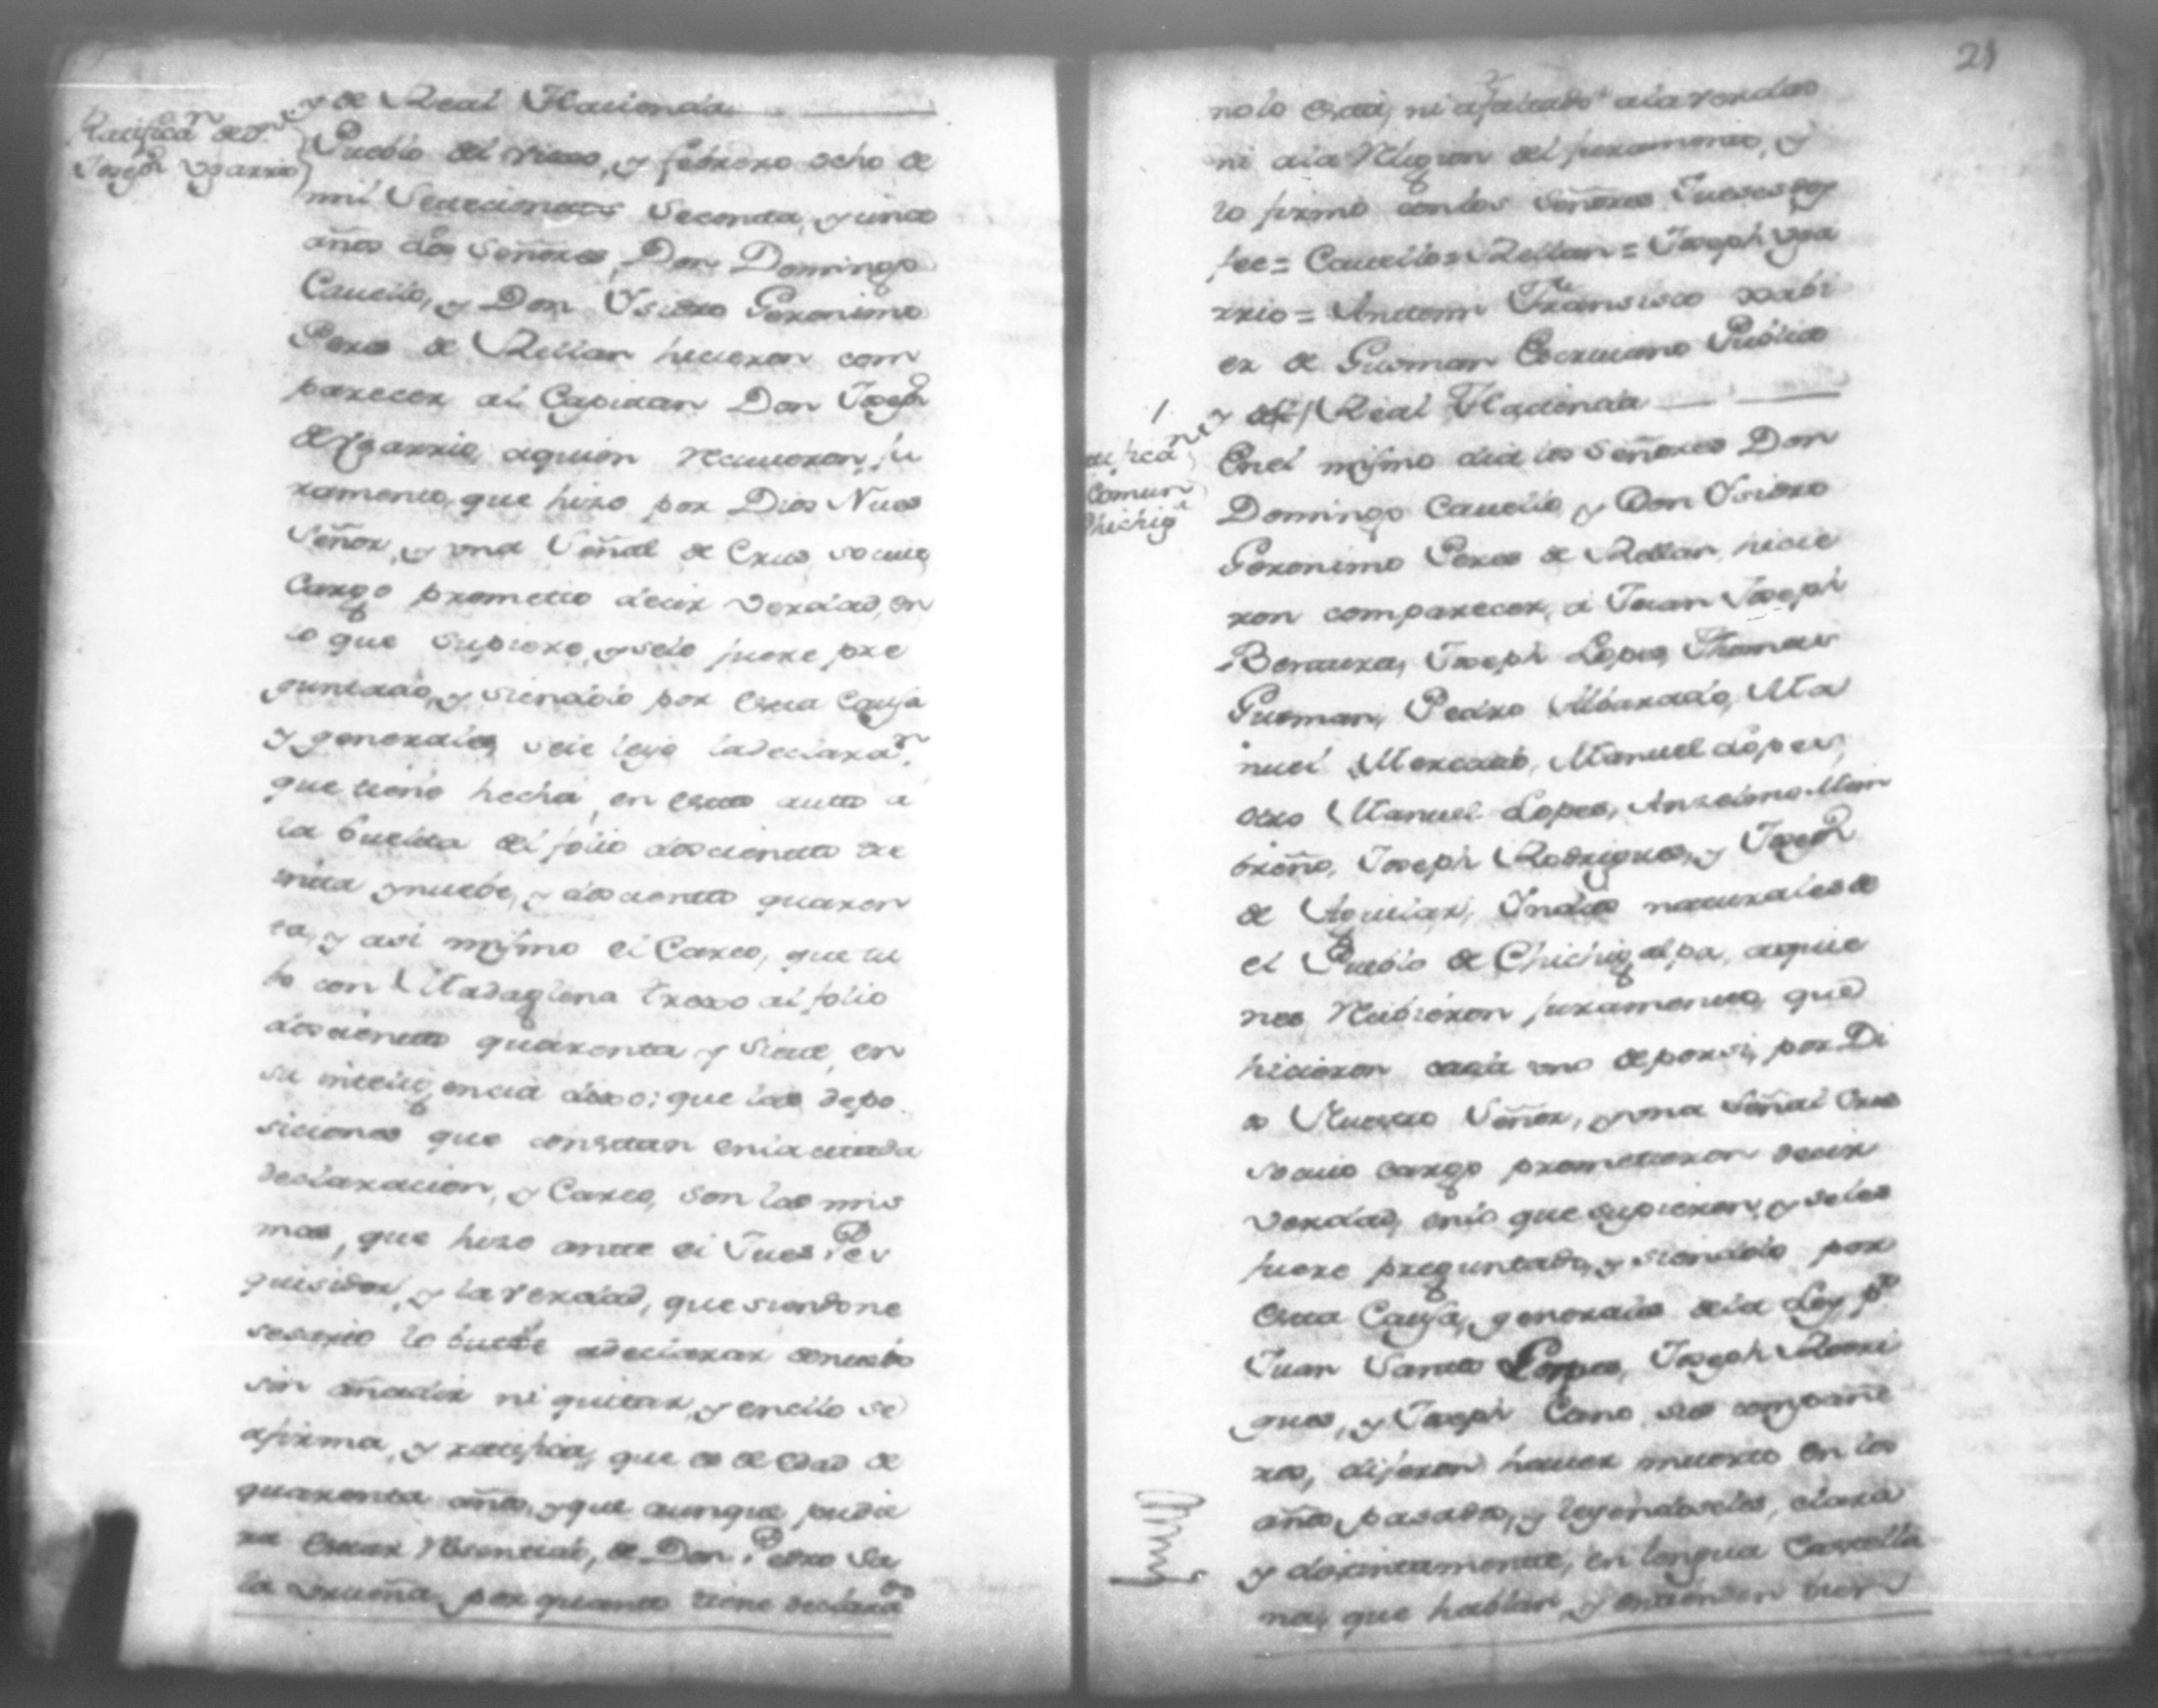 y de Real Hacienda
Ratificaⁿ de Dⁿ
Joseph Ygarrio
Pueblo del viexo, y febrero ocho de
mil Setecientos Secenta, y cinco
años los Señores Don Domingo
Cavello, y Don Ysidro Geronimo
Peres de Rellan hicieron com
parecer al Capitan Don Joseph
de Ygarrio, aquien Recivieron, ju
ramento, que hizo por Dios Nues
Señor, y una Señal de Crus, so cuio
cargo prometio decir verdad, en
lo que Supiere, y sele fuere pre
guntado, y siendolo por Esta Causa
y generales, sele leyo la declaraⁿ.
que tiene hecha, en Estto autto a
la buelta del folio doscientto tre
intta y nuebe, y doscientto quaren
ta, y asi mismo el Careo, que tu
bo con Madaglena trexo al folio
doscientto quarenta y Siete, en
su inteligencia dixo; que las depo
siciones que constan en la cittada
declaracion, y Careo, son las mis
mas, que hizo antte el Jues Pes
quisidor, y la verdad, que siendo ne
sesario lo buelbe adeclarar de nuebo
sin añadir ni quittar, y en ello se
afirma, y ratifica, que es de edad de
quarenta años, y que aunque pudie
ra Estar Resentido, de Don Pedro de
la por quantto tiene declarado
21
no lo Está, ni afaltado ala verdad
ni ala Religion del juramento, y
lo firmo con los Señores Jueses doy
fee = Cavello = Rellan = Joseph Yga
rrio = Antemi Fransisco Xabi
er de Gusman Escrivano Publico
y de Real Hacienda
tifica
Comun
Chichigᵃ
En el mismo dia los Señores Don
Domingo Cavello, y Don Ysidro
Geronimo Peres de Rellan, hicie
ron comparecer, a Juan Joseph
Bentura, Joseph Lopes, Thomas
Gusman, Pedro Albarado, Ma
nuel Mercado, Manuel Lopes,
otro Manuel Lopes, Anzelmo Mon
breño, Joseph Rodrigues, y Joseph
de Aguilar, Indios naturales de
el Pueblo de Chichigalpa, aquie
nes Recibieron juramento, que
hicieron cada uno de por si, por Di
os Nuestro Señor, y una Señal Crus
so cuio cargo prometieron decir
verdad, en lo que supieren, y seles
fuere preguntado, y siendolo por
Esta Causa, y generales dela Ley, pº
Juan Santto Lopes, Joseph Rodri
gues, y Joseph Cano, sus compañe
ros, dijeron haver muerto en los
años pasados, y leyendoseles, clara
y distintamente, en lengua Castella
na, que hablan, y entienden bien